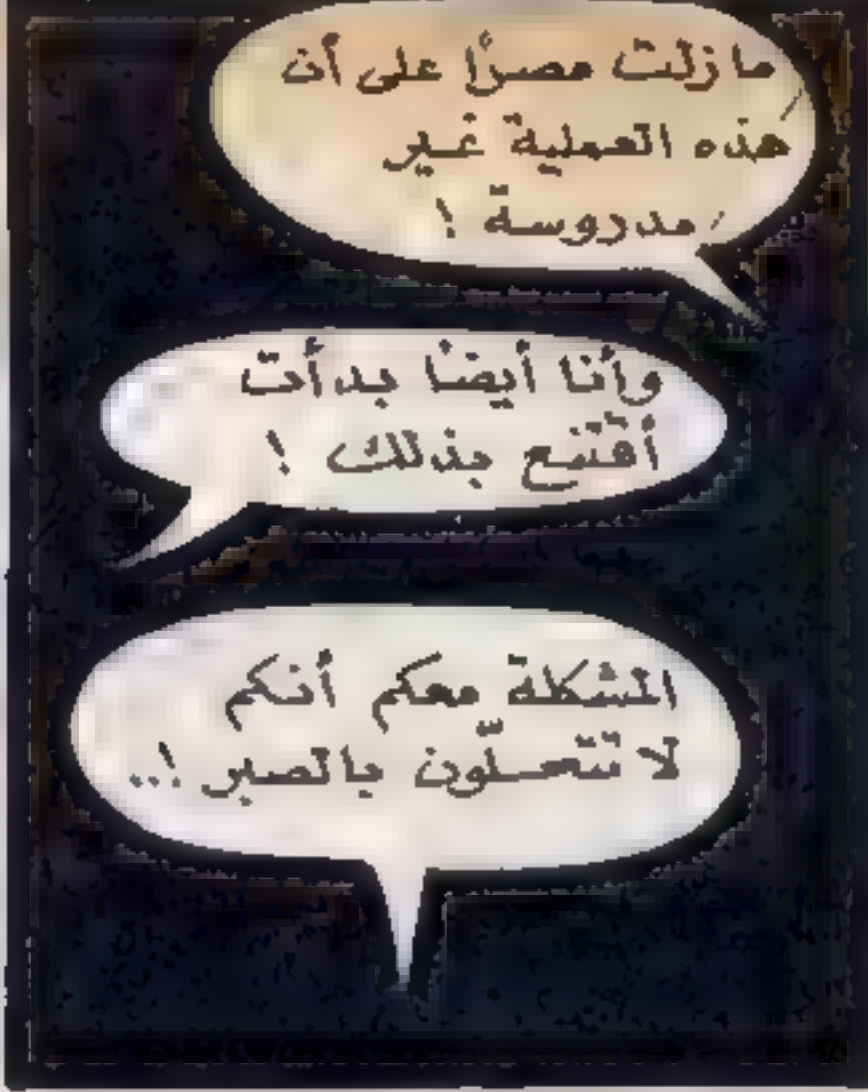 ما زلت مصرًا على أن
هذه العملية غير
مدروسة !
وأنا أيضًا بدأت
أقتنع بذلك !
المشكلة معكم أنكم
لا تتحلّون بالصبر !..